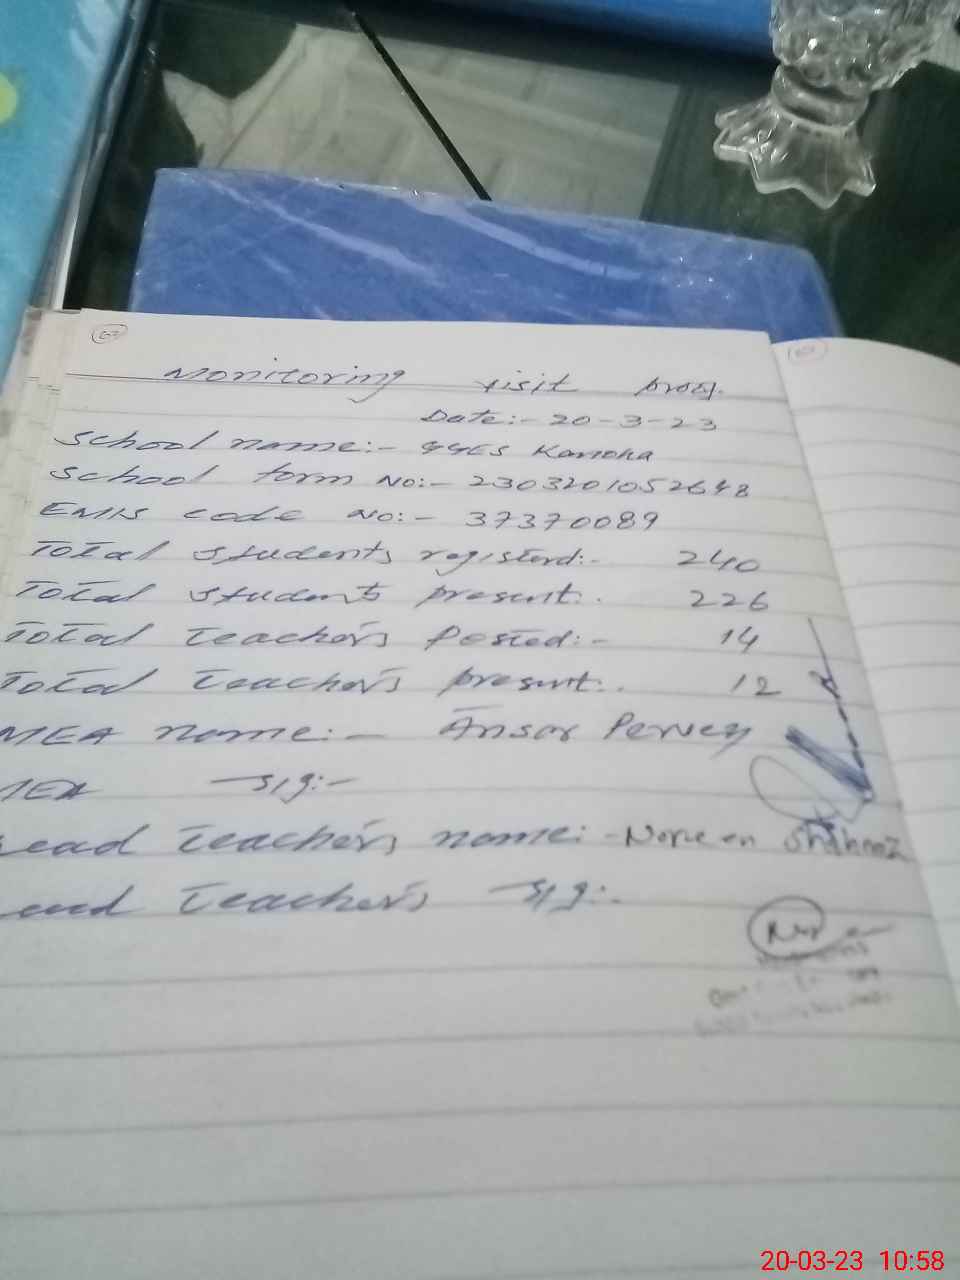 Monitoring visit proof.
Date:- 20-3-23
School name:- GGES Kanoha
School form No:- 2303201052648
EMIS code No:- 37370089
Total students registerd:- 240
Total students present:. 226
Total teacher's Posted:- 14
Total teacher's present:. 12
MEA name:- Ansar Pervez
MEA sig:-
ead teacher's name:- Noreen Shahnaz
ead teacher's sig:.
20-03-23 10:58